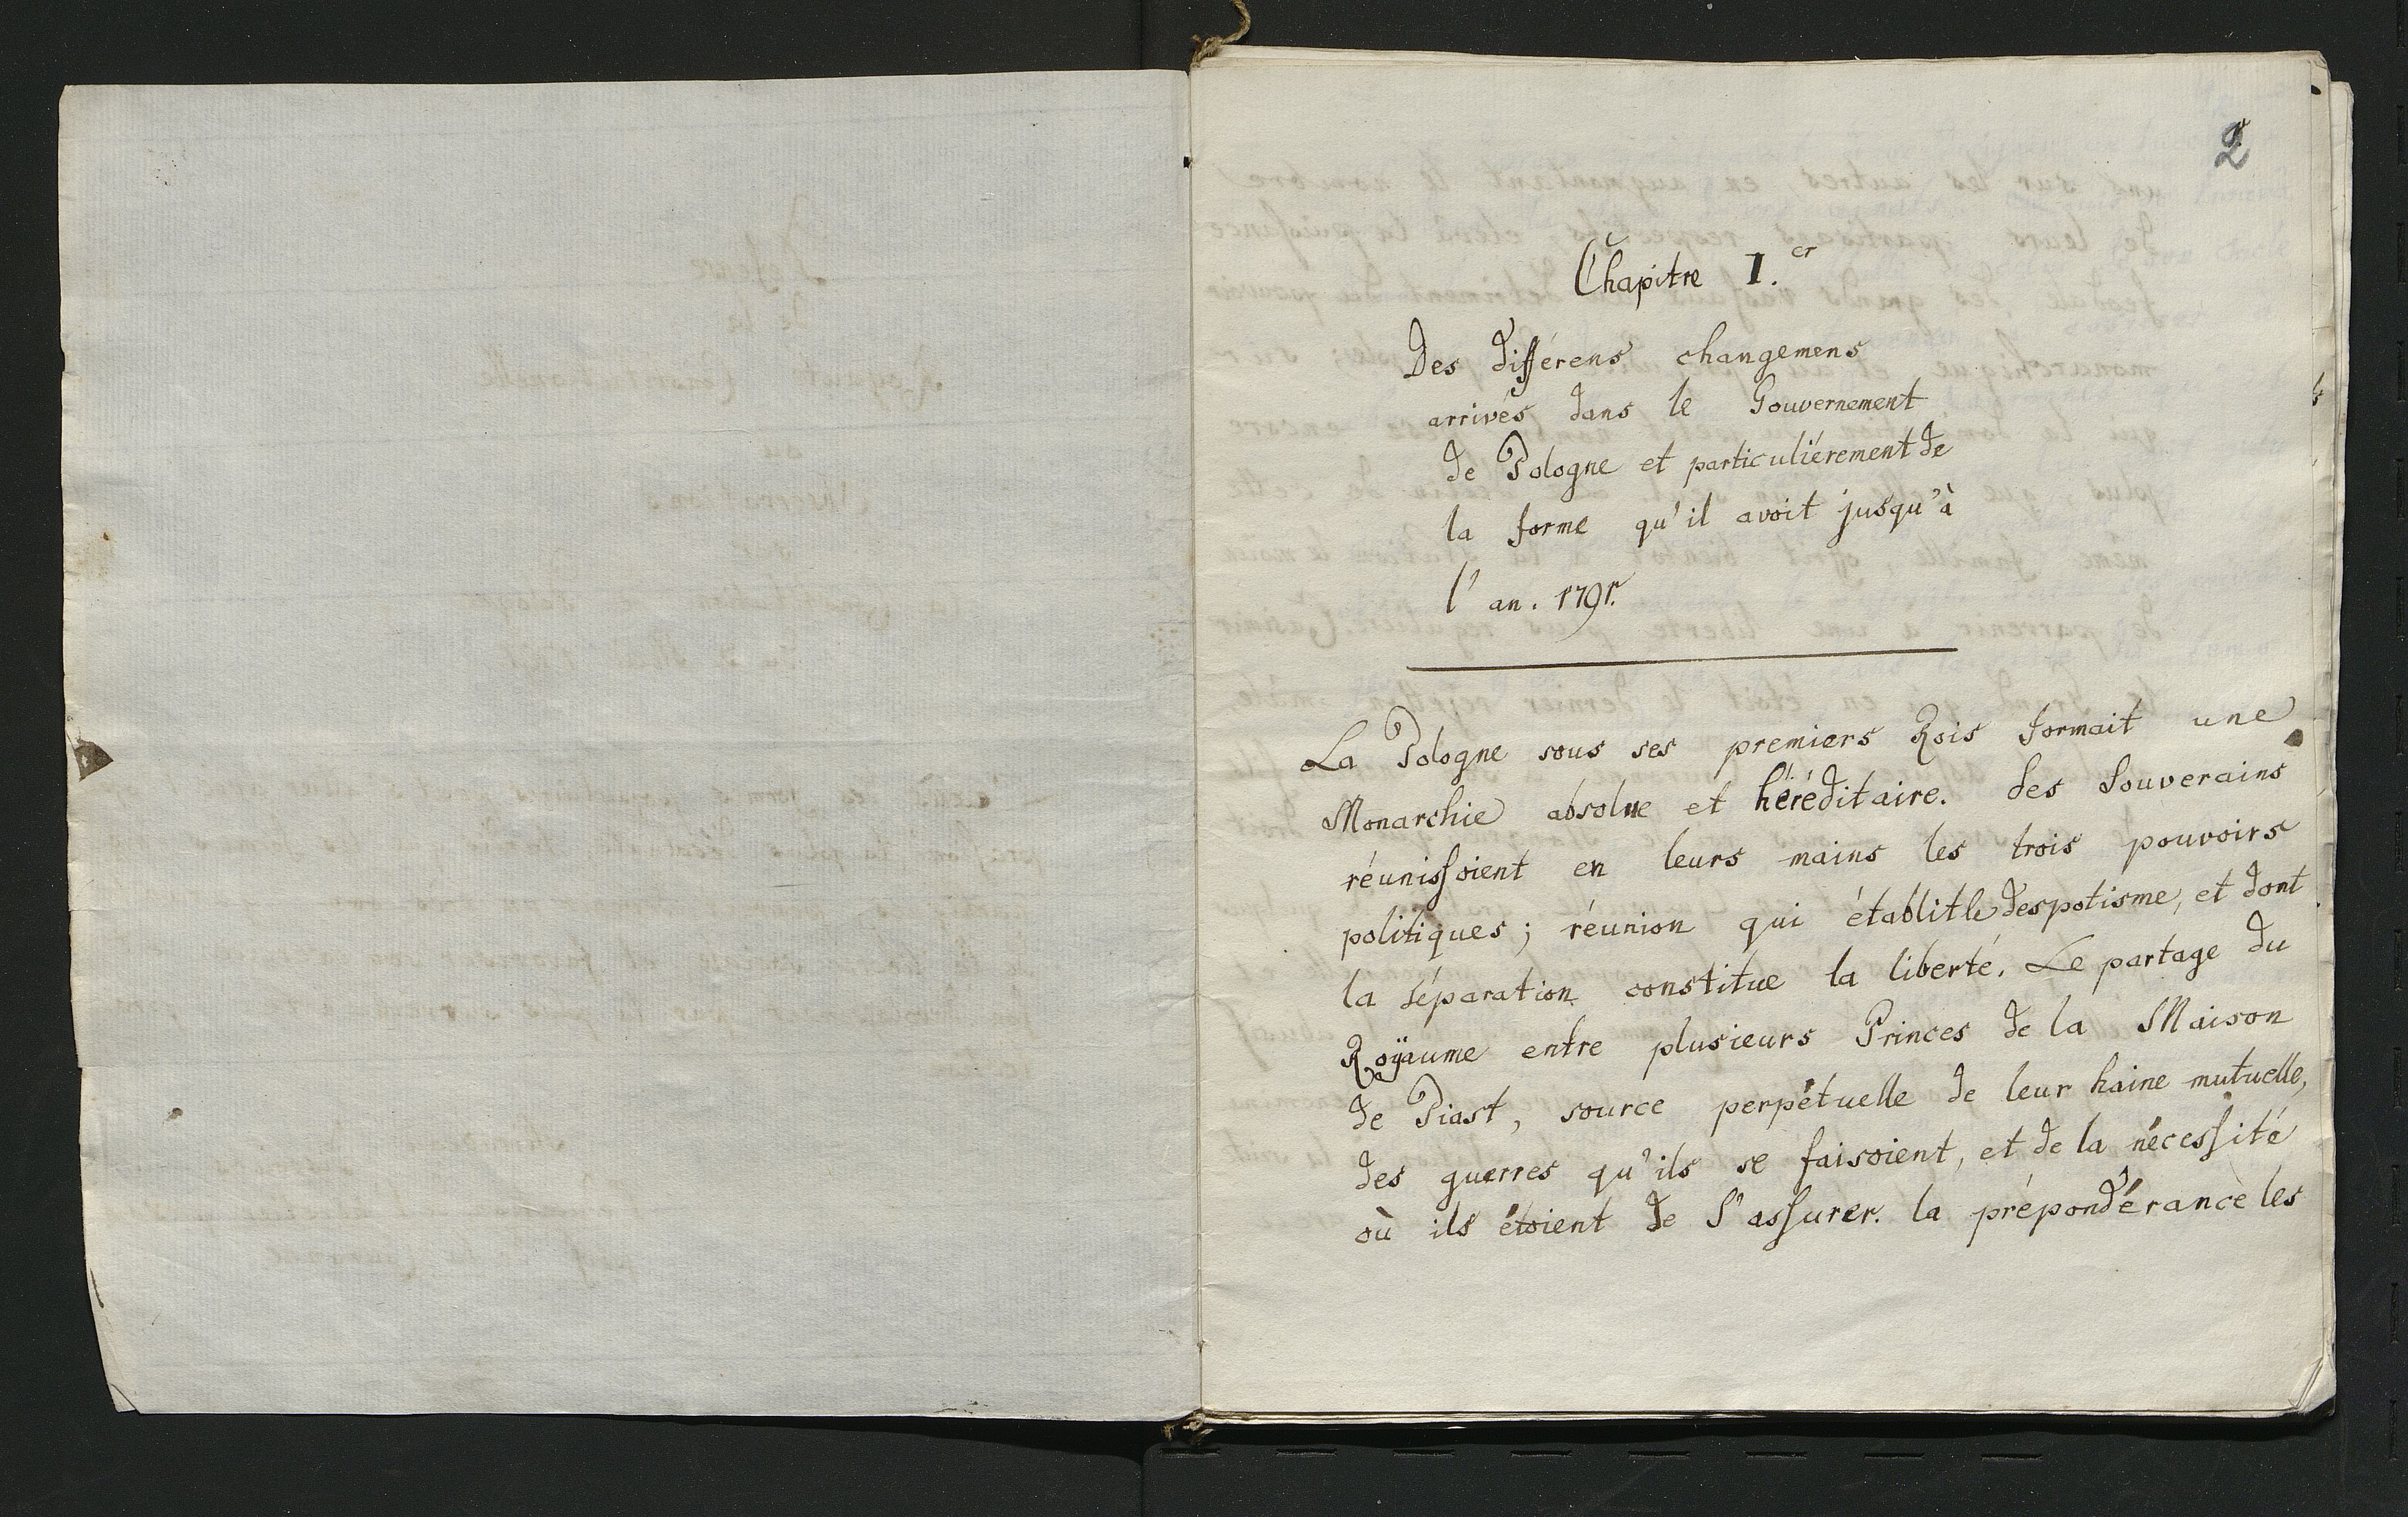 2
Chapitre I.er
Des différens changemens
arrivés dans le Gouvernement
de Pologne et particuliérement de
la forme qu'il avoit jusqu'à
l'an. 1791.
La Pologne sous ses premiers Rois formait une
Monarchie absolue et héréditaire. Ses Souverains
réunissoient en leurs mains les trois pouvoirs
politiques; réunion qui établit le despotisme, et dont
la séparation constitue la liberté. Le partage du
Roÿaume entre plusieurs Princes de la Maison
de Piast, source perpétuelle de leur haine mutuelle,
des guerres qu'ils se faisoient, et de la nécessité
où ils étoient de S'assurer. la prépondérance les